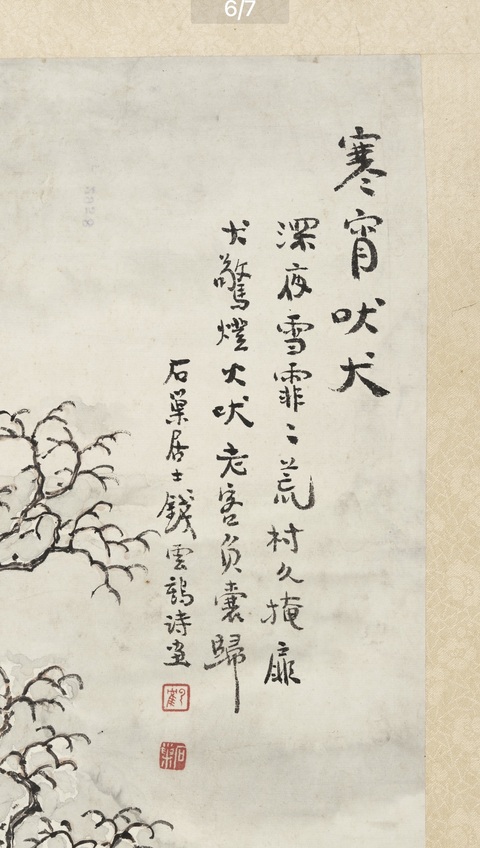 6/7
寒宵吠犬
深夜雪霏〻荒村久掩扉
犬驚燈火吠老客負囊歸
石巢居士錢雲鶴詩畫
石巢